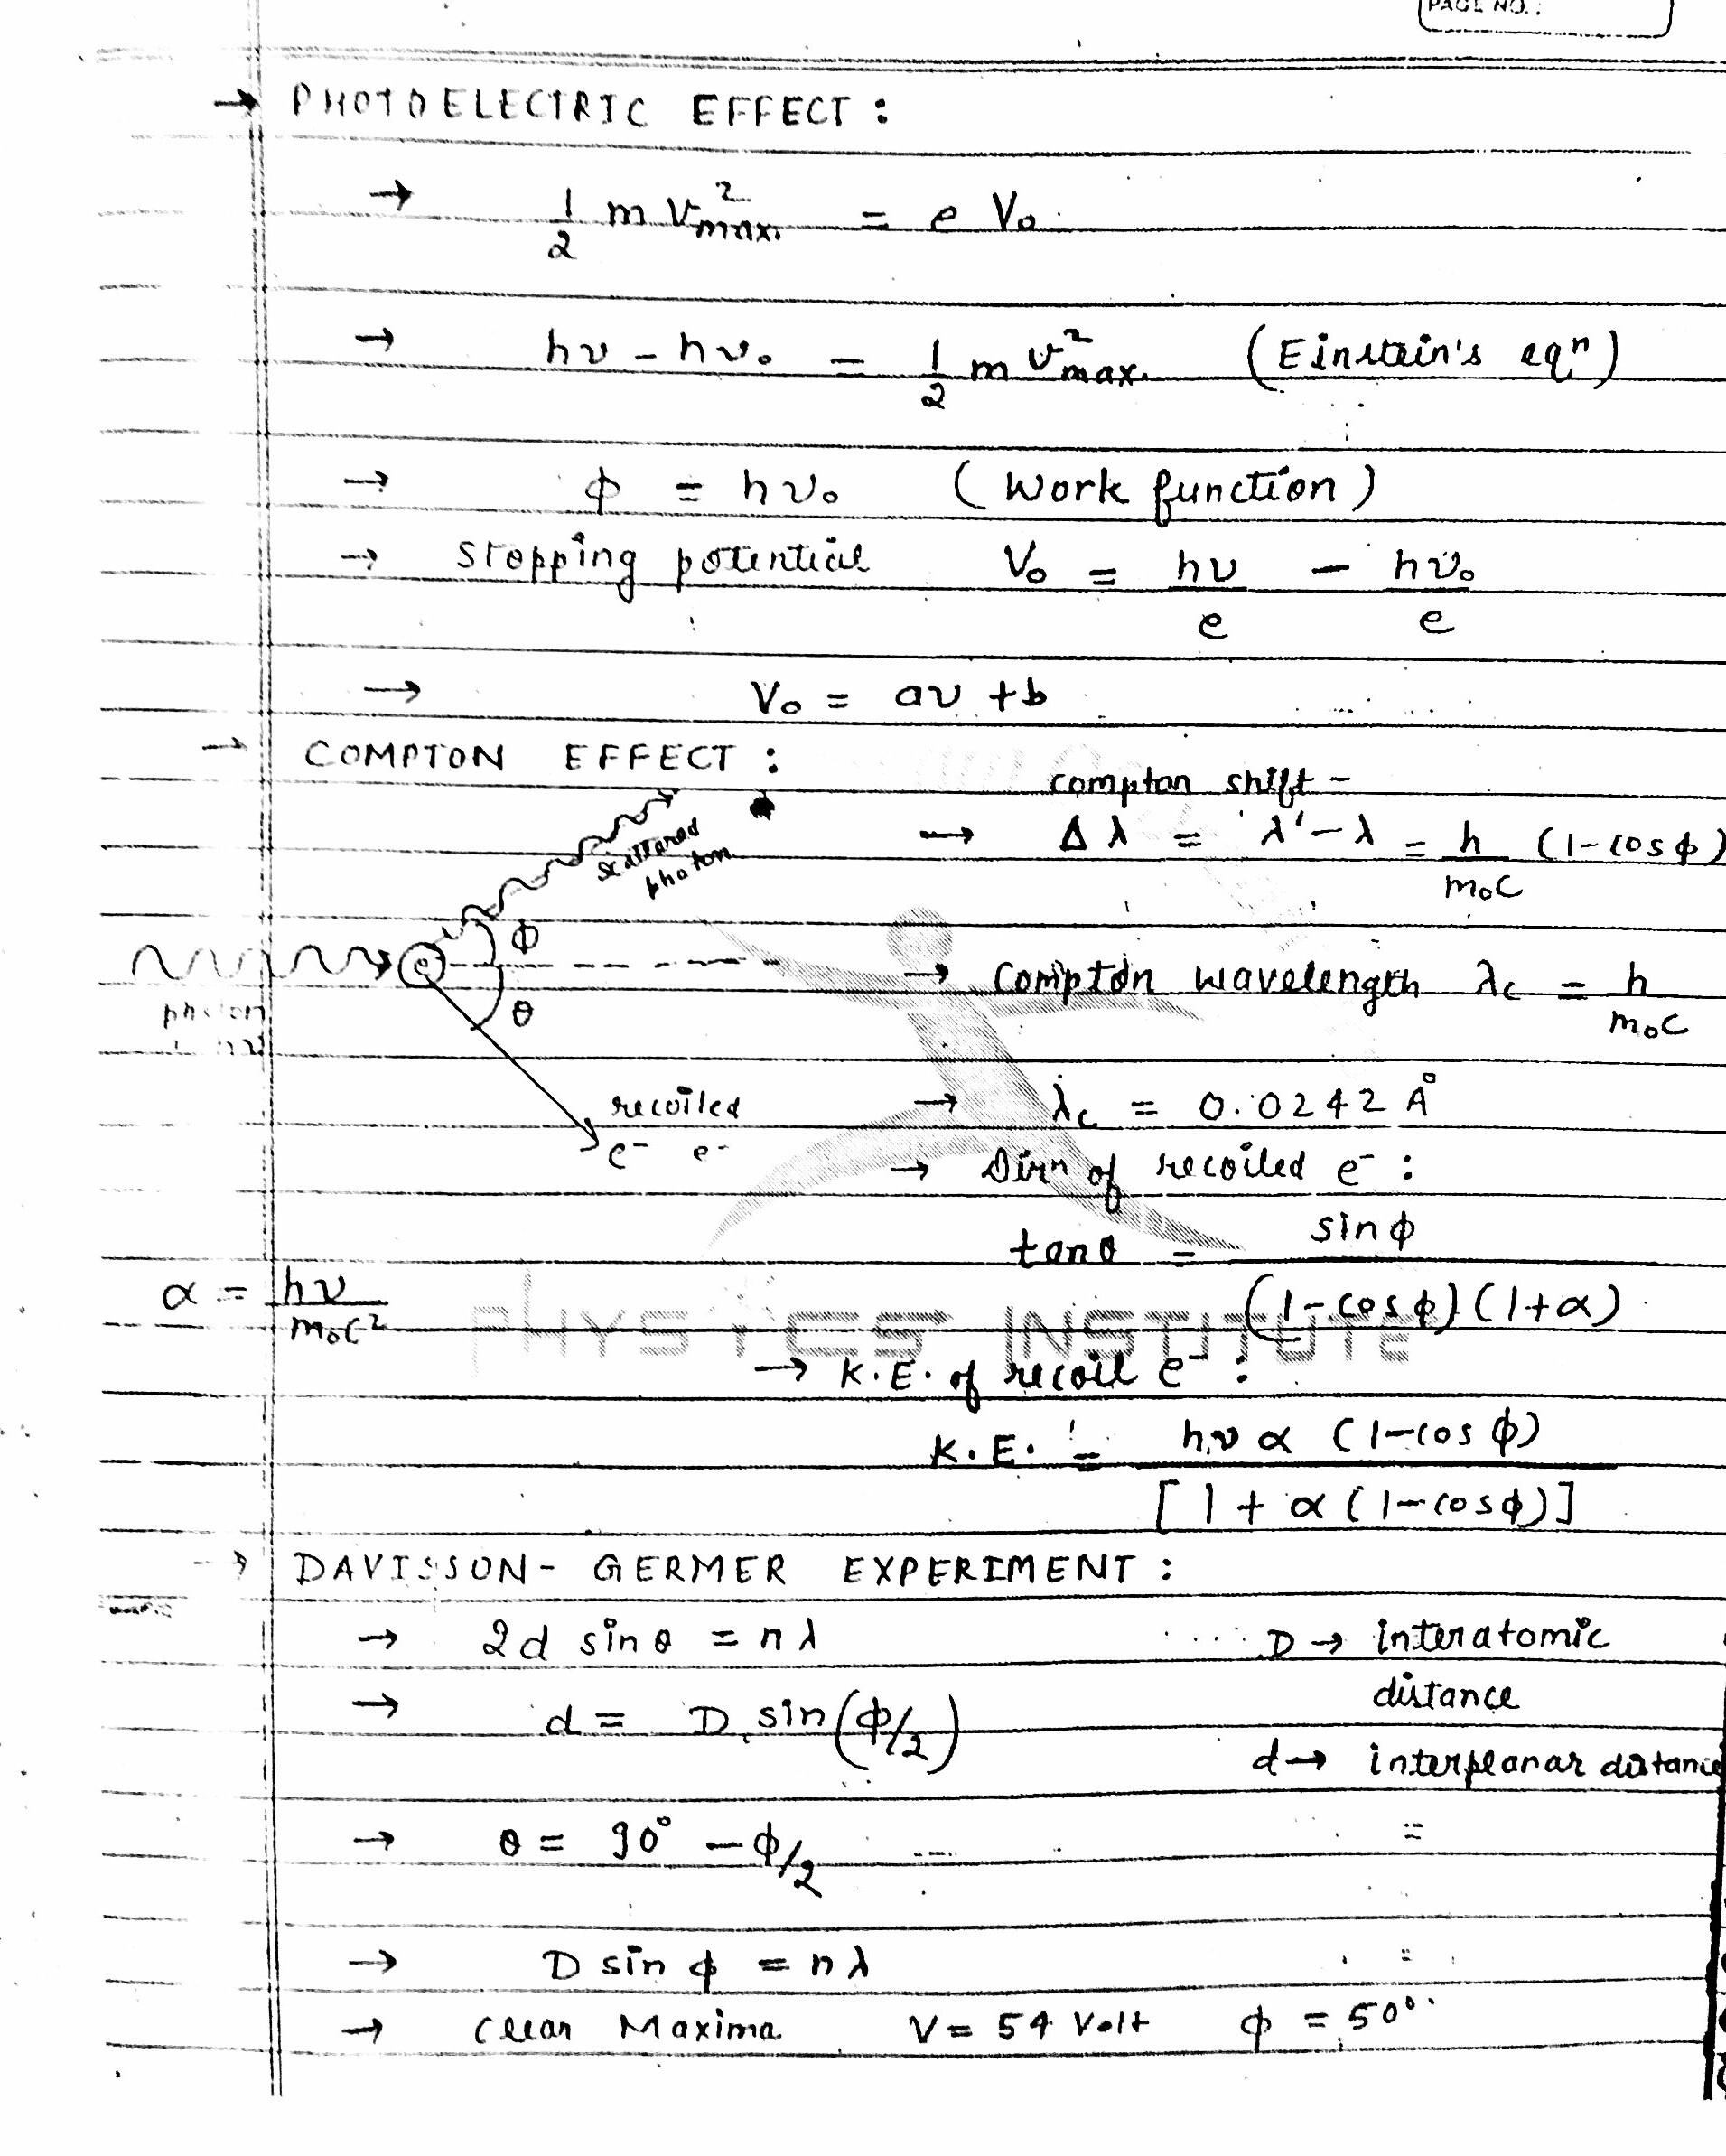 PAGE NO.:
→ PHOTOELECTRIC EFFECT :
→ 1/2 m v²max. = e V₀
→ hν - hν₀ = 1/2 m v²max. (Einstein's eqⁿ)
→ ϕ = hν₀ (Work function)
→ stopping potential V₀ = hν/e - hν₀/e
→ V₀ = aν + b
→ COMPTON EFFECT :
compton shift -
→ Δλ = λ' - λ = h/m₀c (1-cosϕ)
scattered photon
ϕ
e
θ
photon
hν
→ Compton wavelength λc = h/m₀c
recoiled
e⁻ e⁻
→ λc = 0.0242 Å
→ Dirⁿ of recoiled e⁻ :
tanθ = sinϕ/(1-cosϕ)(1+α)
α = hν/m₀c²
PHYSICS INSTITUTE
→ K.E. of recoil e⁻ :
K.E. = hν α (1-cosϕ)/[1 + α(1-cosϕ)]
→ DAVISSON-GERMER EXPERIMENT :
→ 2d sinθ = nλ D → interatomic distance
→ d = D sin(ϕ/2) d → interplanar distance
→ θ = 90° - ϕ/2
→ D sin ϕ = nλ
→ Clear Maxima V = 54 Volt ϕ = 50°